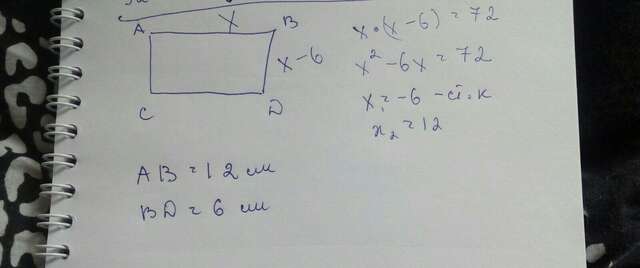 x
A
B
x-6
C
D
x•(x-6)=72
x²-6x=72
x₁=-6 - ст.к
x₂=12
AB=12 см
BD=6 см